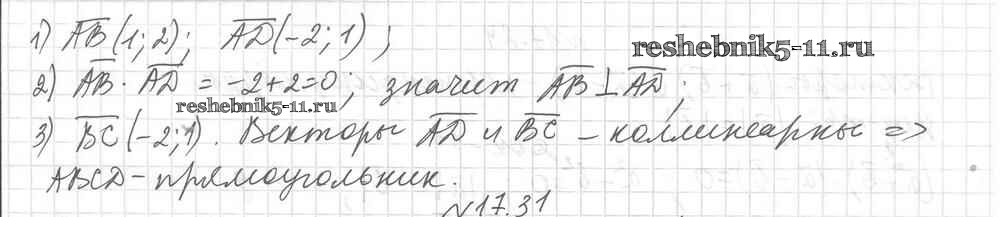 1) AB(1; 2); AD(-2; 1);
reshebnik5-11.ru
2) AB · AD = -2+2=0; значит AB ⊥ AD;
reshebnik5-11.ru
3) BC(-2;1). Векторы AD и BC – коллинеарны =>
ABCD – прямоугольник.
№17.31